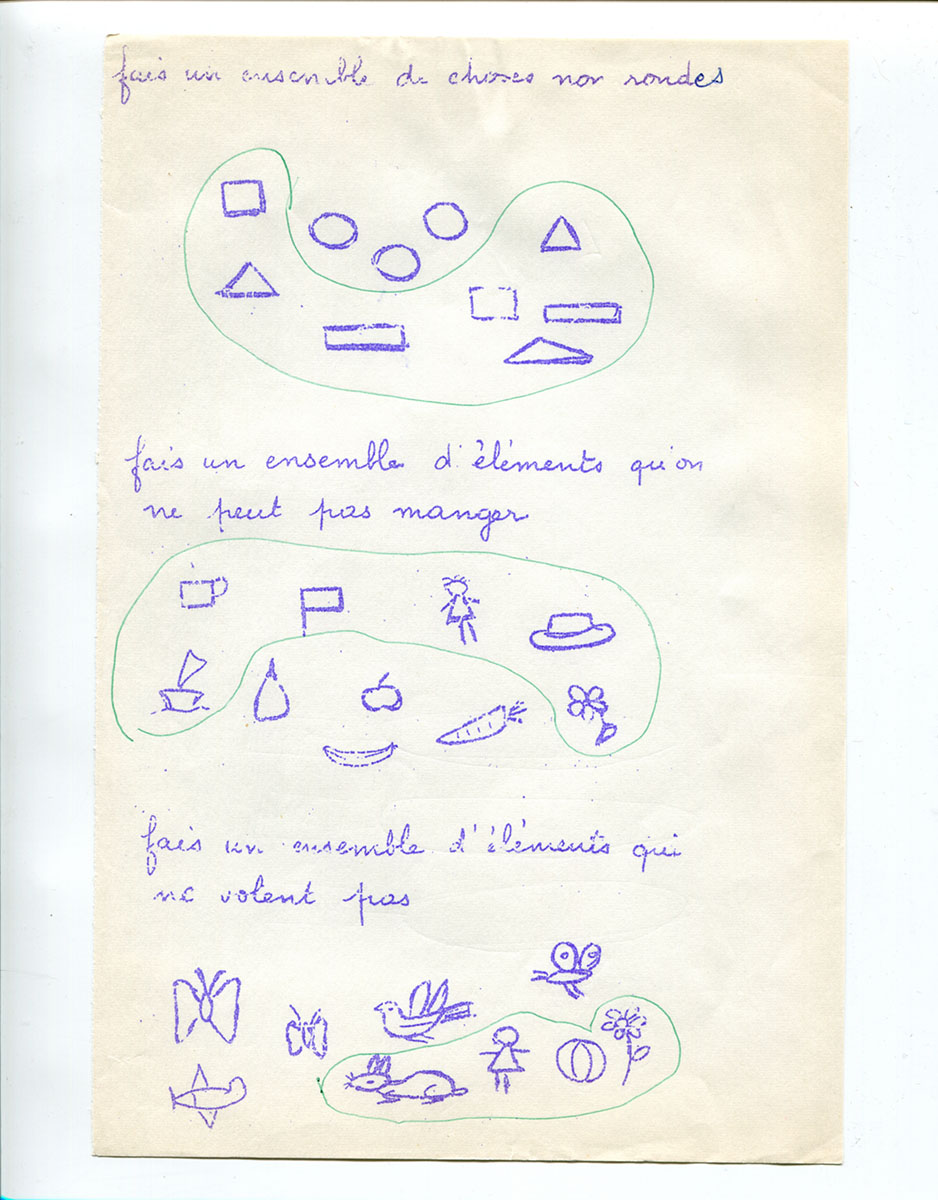 fais un ensemble de choses non rondes
fais un ensemble d'éléments qu'on
ne peut pas manger
fais un ensemble d'éléments qui
ne volent pas